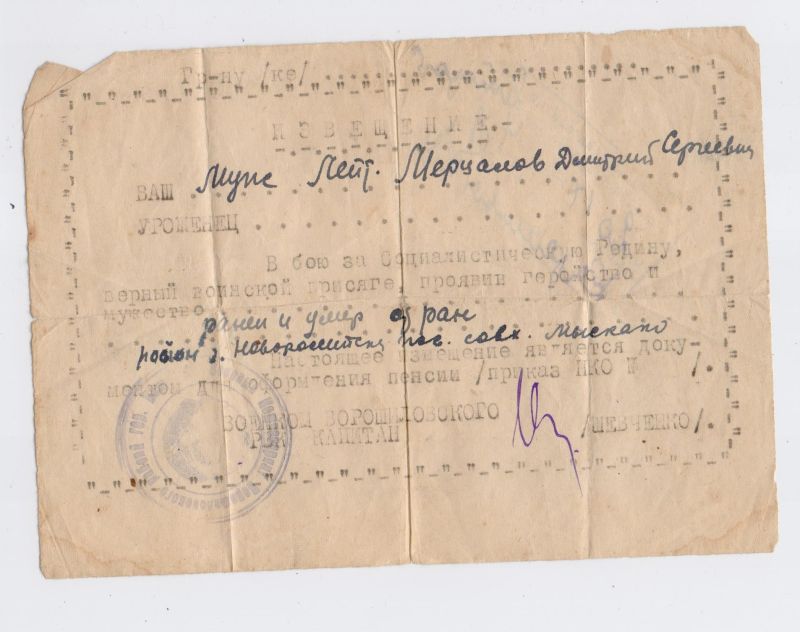 Гр-ну /ке/
ИЗВЕЩЕНИЕ.-
ВАШ Муж Лейт. Мерцалов Дмитрий Сергеевич
УРОЖЕНЕЦ
В бою за Социалистическую Родину,
верный воинской присяге, проявив геройство и
мужество,
ранен и умер от ран
район г. Новороссийска пос. совх. Мысхако
Настоящее извещение является доку-
ментом для оформления пенсии /приказ НКО № /.
ВОЕНКОМ ВОРОШИЛОВСКОГО
РВК КАПИТАН /ШЕВЧЕНКО/.